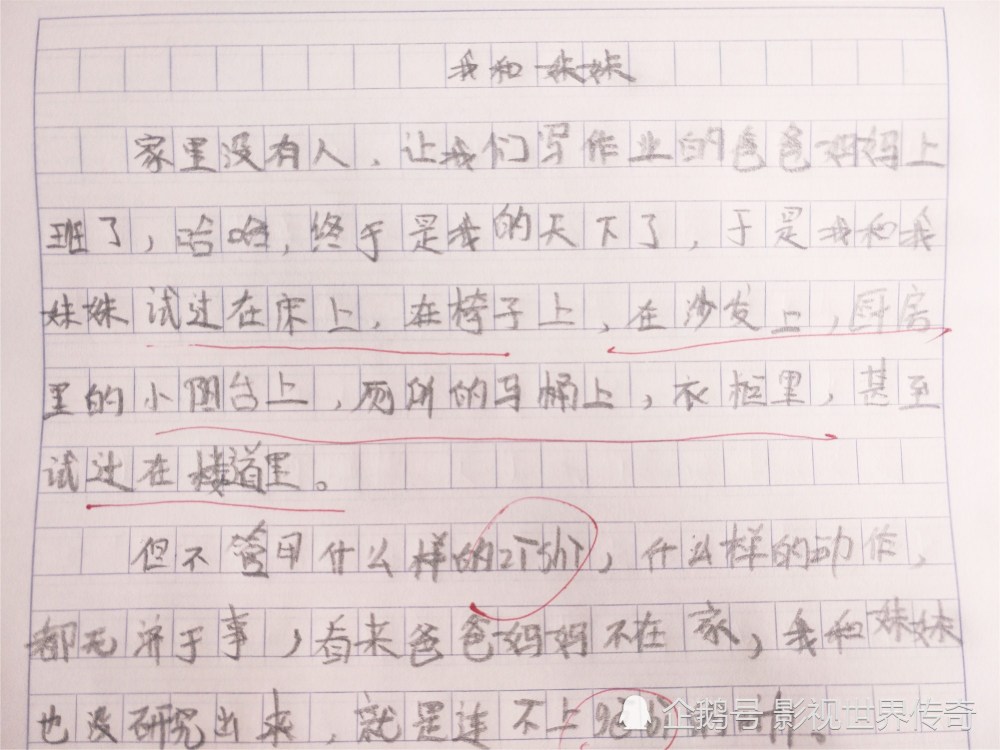 我和妹妹
家里没有人,让我们写作业的爸爸妈妈上
班了,哈哈,终于是我的天下了,于是我和我
妹妹试过在床上,在椅子上,在沙发上,厨房
里的小阳台上,厕所的马桶上,衣柜里,甚至
试过在楼道里。
但不管用什么样的,什么样的动作,
都无济于事,看来爸爸妈妈不在家,我和妹妹
也没研究出来,就是连不上
企鹅号 影视世界传奇